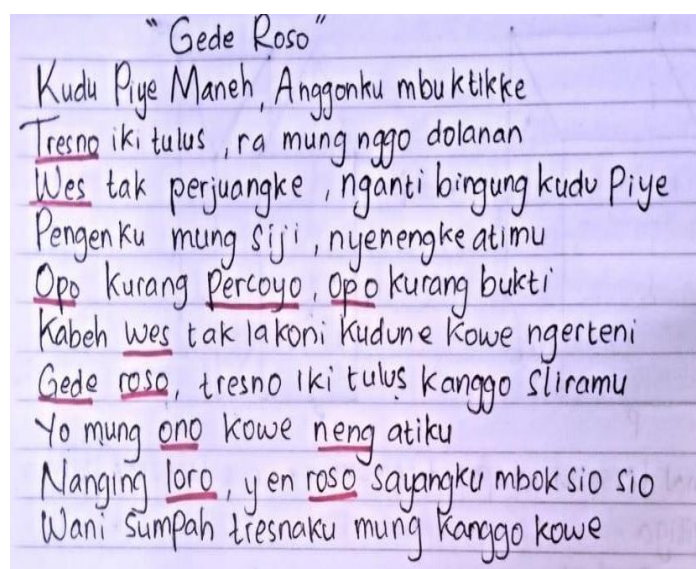 "Gede Roso"
Kudu Piye Maneh, Anggonku mbuktikke
Tresno iki tulus, ra mung nggo dolanan
Wes tak perjuangke, nganti bingung kudu Piye
Pengenku mung siji, nyenengke atimu
Opo kurang percoyo, opo kurang bukti
Kabeh wes tak lakoni kudune kowe ngerteni
Gede roso, tresno iki tulus kanggo sliramu
Yo mung ono kowe neng atiku
Nanging loro, yen roso sayangku mbok sio sio
Wani sumpah tresnaku mung kanggo kowe